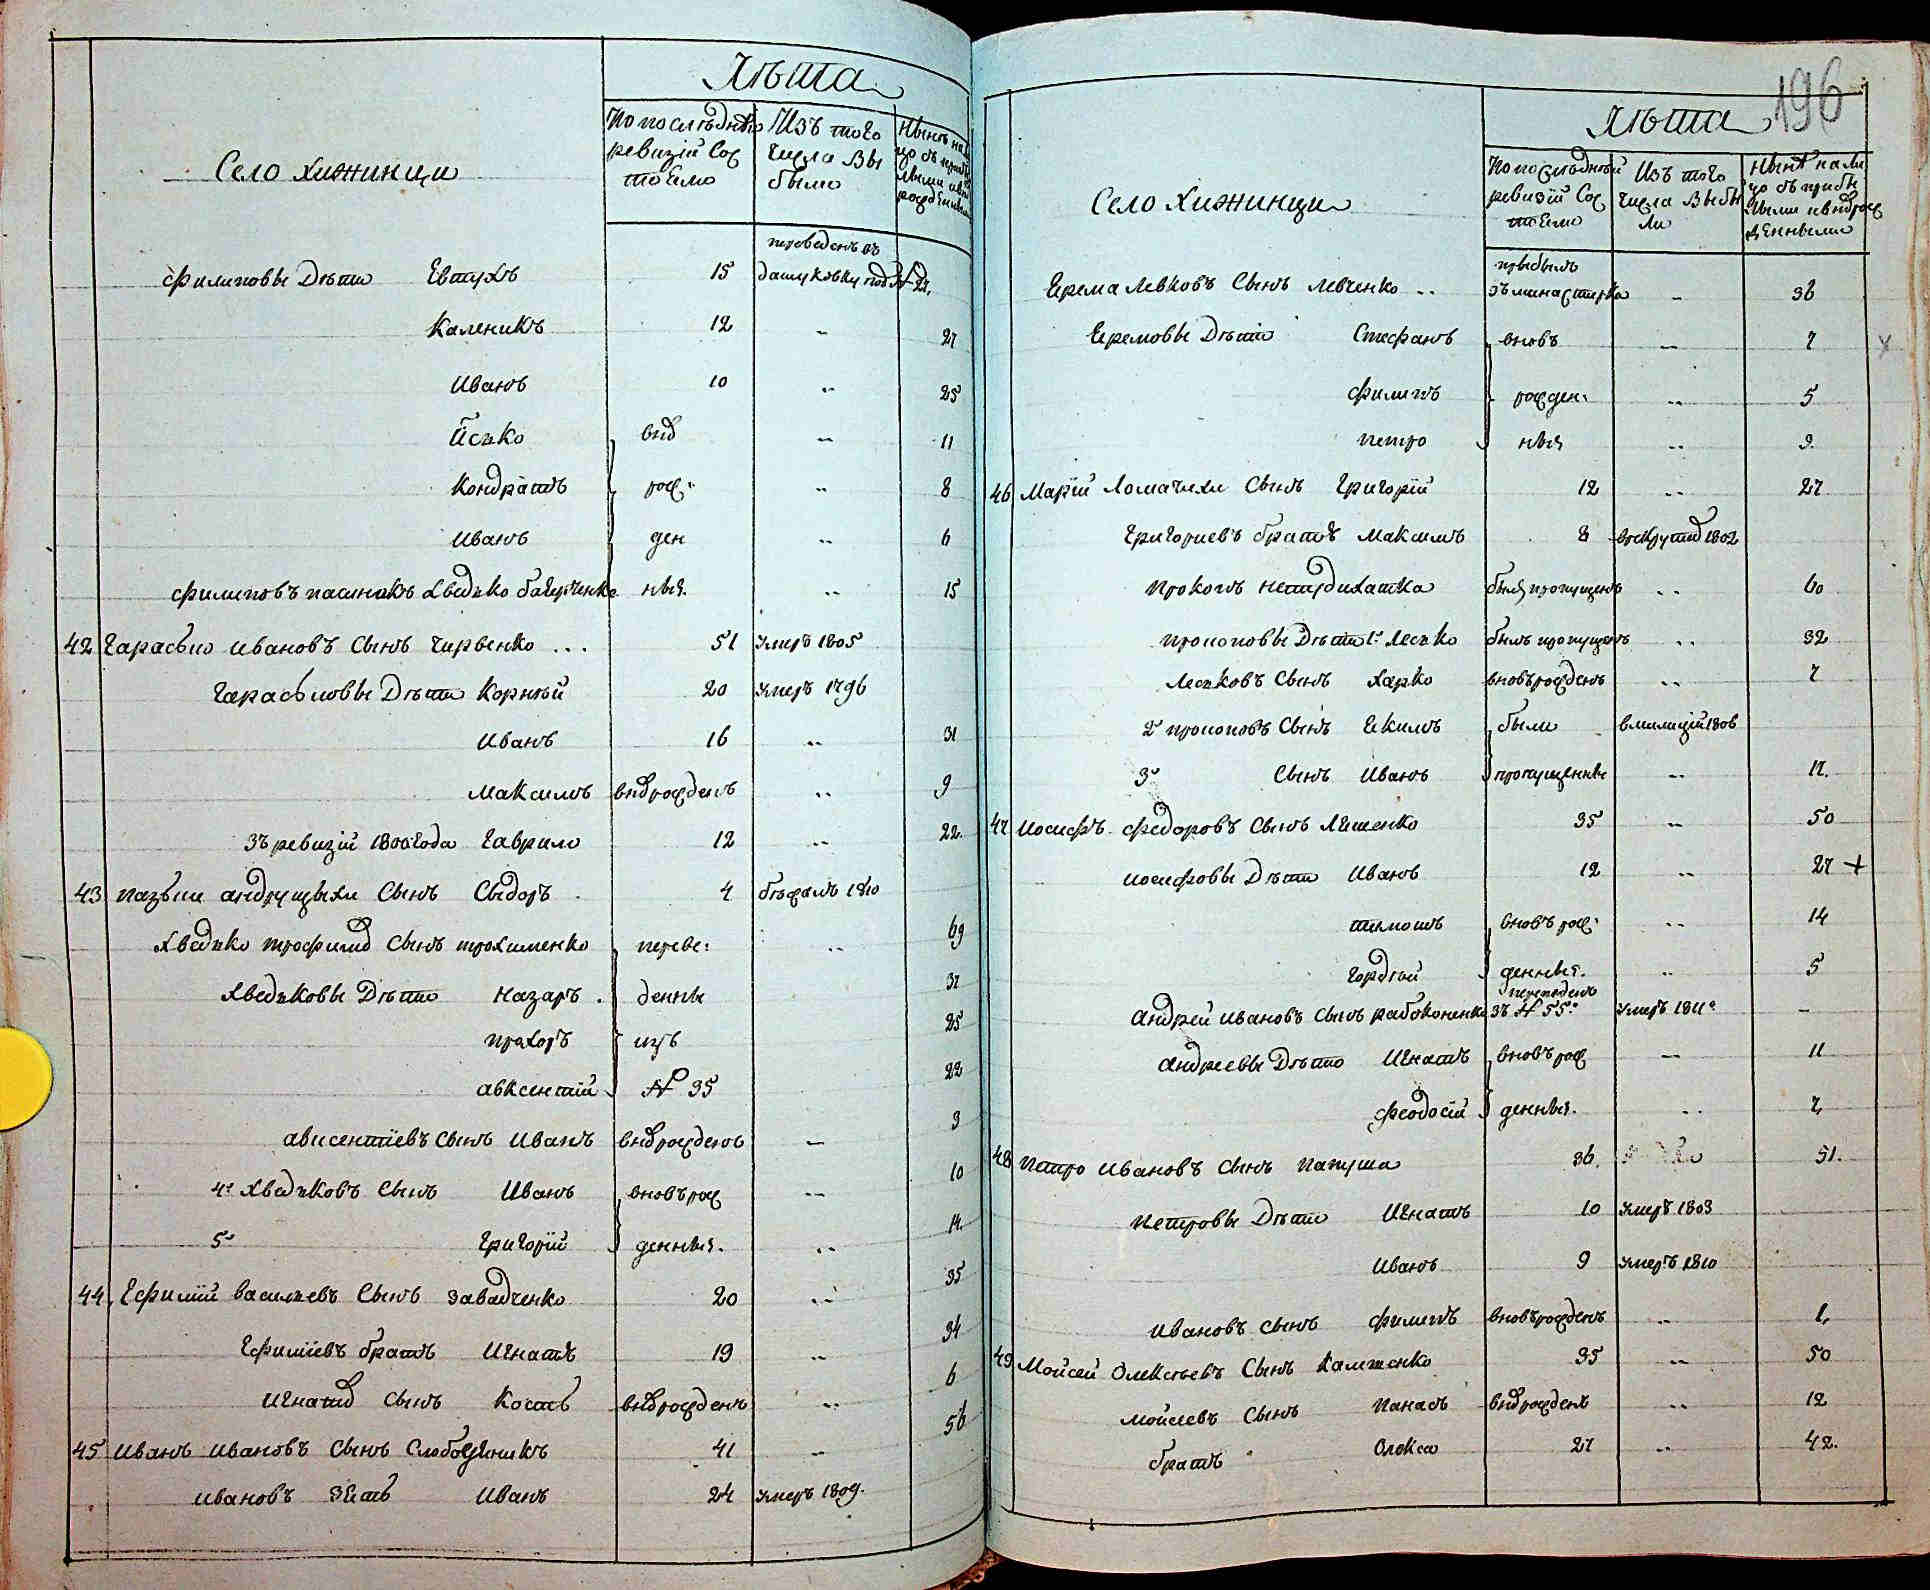 Лѣта
Село Хижинци
По последней ревизіи состояло
Изъ того числа выбыло
Нынѣ на лицо
переведенъ въ
Филиповы Дѣти Евтухъ 15 Дашуковку подъ №
Каленикъ 12 „ 27
Иванъ 10 „ 25
Йсько внов „ 11
Кондратъ рож: „ 8
Иванъ ден „ 6
Филиповъ пасинокъ Хведько ныя. „ 15
42 Гарасько Ивановъ Сынъ Чирвенко ... 51 умеръ 1805
Гараськовы Дѣти Корній 20 умеръ 1796
Иванъ 16 „ 31
Максимъ внов рожденъ „ 9
Зъ ревизіи года Гаврило 12 „ 22.
43 Сынъ Сыдоръ 4 бѣжалъ 1810
Хведько трофимов Сынъ трохименко переве: „ 69
Хведьковы Дѣти Назаръ. денны 37
Прохоръ изъ 25
Авксентій № 35 22
Авксентіевъ Сынъ Иванъ внов рожденъ „ 3
4й Хведьковъ Сынъ Иванъ вновъ рож „ 10
5й Григорій денныя. „ 14.
44 Ефимій Васильевъ Сынъ Завадченко 20 „ 35
Ефиміевъ братъ Игнатъ 19 „ 34
Игнатов Сынъ Кость внов рожденъ „ 6
45 Иванъ Ивановъ Сынъ Слободяникъ 41 „ 56
Ивановъ Зять Иванъ 24 умеръ 1809.
196
Лѣта
Село Хижинци
По последней ревизій состояло
Изъ того числа выбыли
Нынѣ на лицо съ прибылыми и внов рожденными
прибылъ
Ерема Левковъ Сынъ Левченко .. „ 36
Еремовы Дѣти Стефанъ вновъ „ 7
Филипъ рожден: „ 5
Петро ныя „ 3.
46 Марій Сынъ Григорій 12 „ 27
Григориевъ братъ Максимъ 8 в рекруты 1802
Прокопъ былъ пропущенъ „ 60
Прокоповы Дѣти 1й Лесько былъ пропущенъ „ 32
Леськовъ Сынъ Харко вновъ рожденъ „ 7
2й прокоповъ Сынъ Екимъ были в милиціи 1806
3й Сынъ Иванъ пропущенны „ 17.
47 Иосифъ Федоровъ Сынъ Ляшенко 35 „ 50
Иосифовы Дѣти Иванъ 12 „ 27 +
Тимошъ вновъ рож: „ 14
Гордѣй денныя. „ 5
переведенъ
Андрей Ивановъ Сынъ Рабоконенко зъ № 55: умеръ 1811го -
Андреевы Дѣти Игнатъ вновъ рож „ 11
Феодосій денныя. „ 7
48 Петро Ивановъ Сынъ Папуша 36. 51.
Петровы Дѣти Игнатъ 10 умеръ 1803
Иванъ 9 умеръ 1810
Ивановъ Сынъ Филипъ вновъ рожденъ „ 1,
49 Мойсей Олексѣевъ Сынъ 35 „ 50
Мойсеевъ Сынъ Панасъ внов рожденъ „ 12
братъ Олекса 27 „ 42.